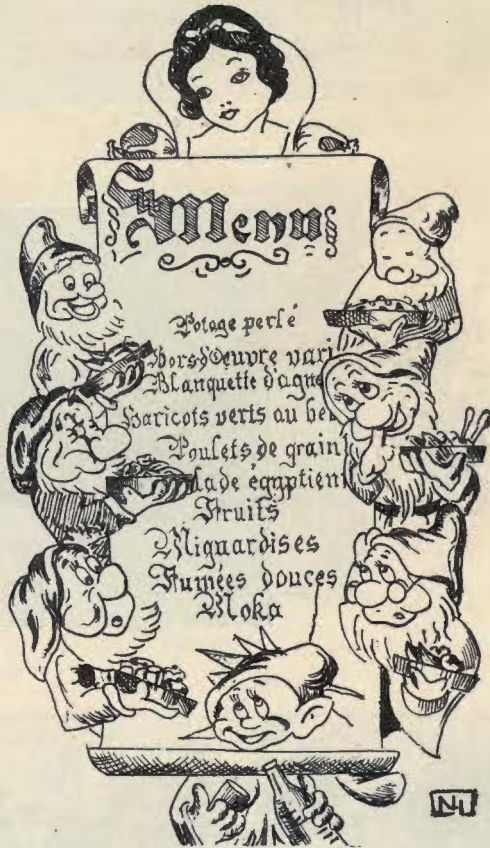 Menu
Potage perlé
Hors d'Œuvre vari
Blanquette d'agne
Haricots verts au be
Poulets de grain
lade égyptien
Fruits
Mignardises
Fumées douces
Moka